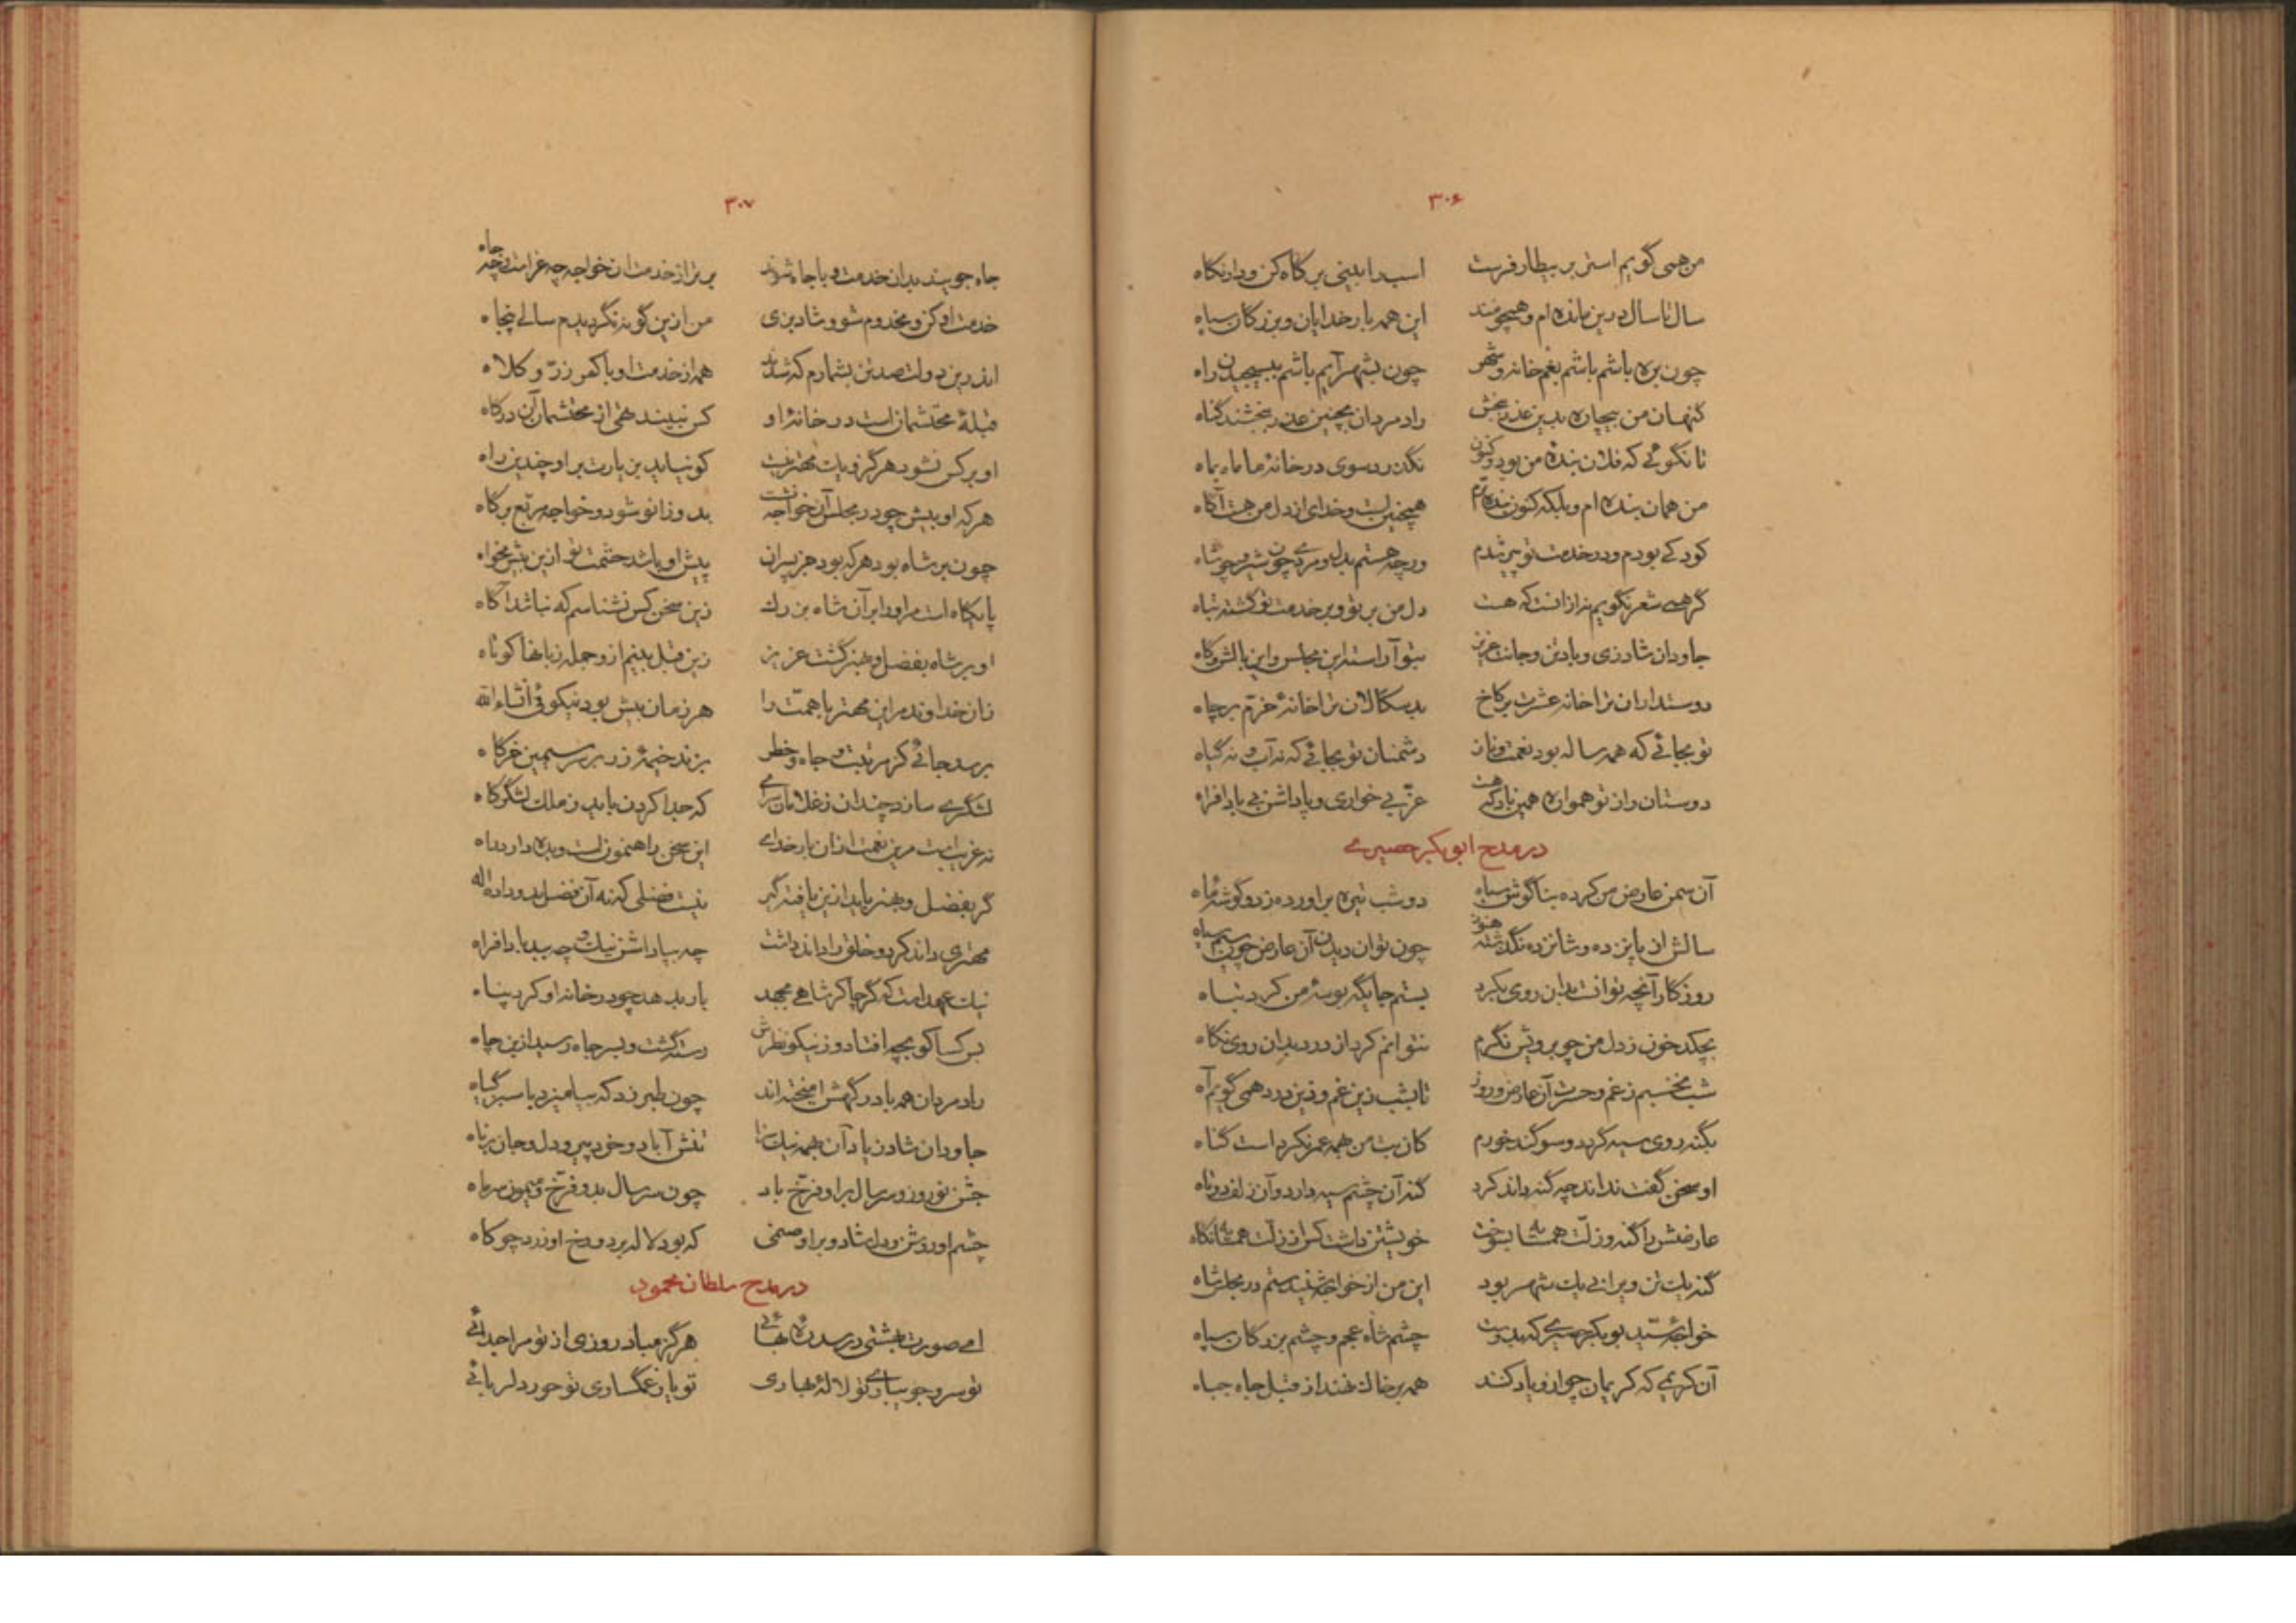 ۳۰۶
من همی گویم استر بر بیطار فرست اسب را بینی بر کاه کن و دار نگاه
سال تا سال درین مانده ام و همچو منند این همه بار خدایان و بزرگان سپاه
چون بره باشم باشم بغم خانه و شهر چون بشهر آیم باشم ببسیجیدن راه
گنهان من بیچاره بدین عذر ببخش راد مردان بچنین عذر ببخشند گناه
تا نگوئی که فلان بنده من بود و کنون نگذرد سوی در خانه ما ماه بماه
من همان بنده ام و بلکه کنون بنده ترم همچنین است و خدای از دل من هست آگاه
کودکی بودم و در خدمت تو پیر شدم ورچه هستم بدل و مردی چون شیر و چو شاه
گرهمی شعر نگویم نه از آنست که هست دل من بر تو و بر خدمت تو گشته تباه
جاودان شاد زی و بادتن و جانت عزیز بتو آراسته این مجلس و این بالش و گاه
دوستداران ترا خانه عشرت بر کاخ بدسگالان ترا خانهٔ خرّم بر چاه
تو بجائی که همه ساله بود نعمت و نان دشمنان تو بجائی که نه آب و نه گیاه
دوستان را ز تو همواره همین باد که هست عزّ بی خواری و پاداشن بی بادافراه
در مدح ابوبکر حصیری
آن سمن عارض من کرده بناگوش سیاه دو شب تیره برآورده ز دو گوشهٔ ماه
سالش از پانزده و شانزده نگذشته هنوز چون توان دیدن آن عارض چون سیم سیاه
روزگار آنچه توانست بدان روی بکرد بستم جایگه بوسهٔ من کرد تباه
بچکد خون ز دل من چو برویش نگرم نتوانم کرد از درد بدان روی نگاه
شب نخسبم ز غم و حسرت آن عارض و روز تا بشب زین غم و زین درد همی گویم آه
بگنه روی سیه گردد و سوگند خورم کان بت من همه عمر نکرد است گناه
او سخن گفت نداند چه گنه داند کرد گنه آن چشم سیه دارد و آن زلف دوتاه
عارضش را گنه و زلّت همسایه بسوخت خویشتن داشت کس از زلّت همسایه نگاه
گنه یک تن ویرانی یک شهر بود این من از خواجه شنیدستم در مجلس شاه
خواجهٔ سیّد بوبکر حصیری که بدوست چشم شاه عجم و چشم بزرگان سپاه
آن کریمی که کریمان چو ازو یاد کنند همه بر خاک نهند از قبل جاه جباه
۳۰۷
جاه جویند بدان خدمت و با جاه شوند برتر از خدمت آن خواجه چه عزّ است و چه جاه
خدمت او کن و مخدوم شو و شاد بزی من ازین گونه نگر دیدم سالی پنجاه
اندرین دولت صد تن بشمارم که شدند همه از خدمت او با کمر زرّ و کلاه
قبلهٔ محتشمان است در خانهٔ او کس نبیند تهی از محتشمان آن درگاه
او بر کس نشود هرگز و یک مهتر نیست کو نیاید بزیارت بر او چندین راه
هر که او بیش چو در مجلس آن خواجه نشست بدو زانو شود و خواجه مربّع بر گاه
چون بر شاه بود هر که بود جز پسران پیش او باشد حشمت تو ازین بیش مخواه
پایگاه است مر او را بر آن شاه بزرگ زین سخن کس نشناسم که نباشد آگاه
او بر شاه بفضل و هنر گشت عزیز زین قبل بینم ازو جمله زبانها کوتاه
زان خداوند مر این مهتر با همّت را هر زمان بیش بود نیکوئی انشاء الله
برسد جائی کز مرتبت و جاه و خطر بزند خیمهٔ زر بر سر سیمین خرگاه
لشگری سازد چندان ز غلامان سرای که جدا کردن باید ز ملک لشگرگاه
نه غریب است مرین نعمت از آن بار خدای این سخن راهنمون است و بده دارد راه
گر بفضل و بهنر باید ازین یافته گیر نیست فضلی که نه آن فضل بدو داد اله
مهتری داند کرد و خلق را داند داشت چه بپاداشن نیک و چه ببد بادافراه
نیک عهد است که گر چاکر شاهی بجهد بار بدهد چو در خانه او کرد پناه
بس کسا کو بچه افتاد و ز نیکو نظرش رسته گشت و بسر جاه رسید از بن چاه
رادمردان همه با درگهش آمیخته اند چون طبرزد که بیامیزد با سبز گیاه
جاودان شاد زیاد آن بهمه نیک سزا تنش آباد و خرد پیر و دل و جان برناه
جشن نوروز و سر سال بر او فرّخ باد چون سر سال بدو فرّخ و میمون سر ماه
چشم او روشن و دل شاد و بر او صنمی که بود لاله بر دو رخ او زرد چو کاه
در مدح سلطان محمود
ای صورت بهشتی در سدره بهائی هرگز مباد روزی از تو مرا جدائی
تو سرو جویباری تو لالهٔ بهاری تو یار غمگساری تو حور دلربائی